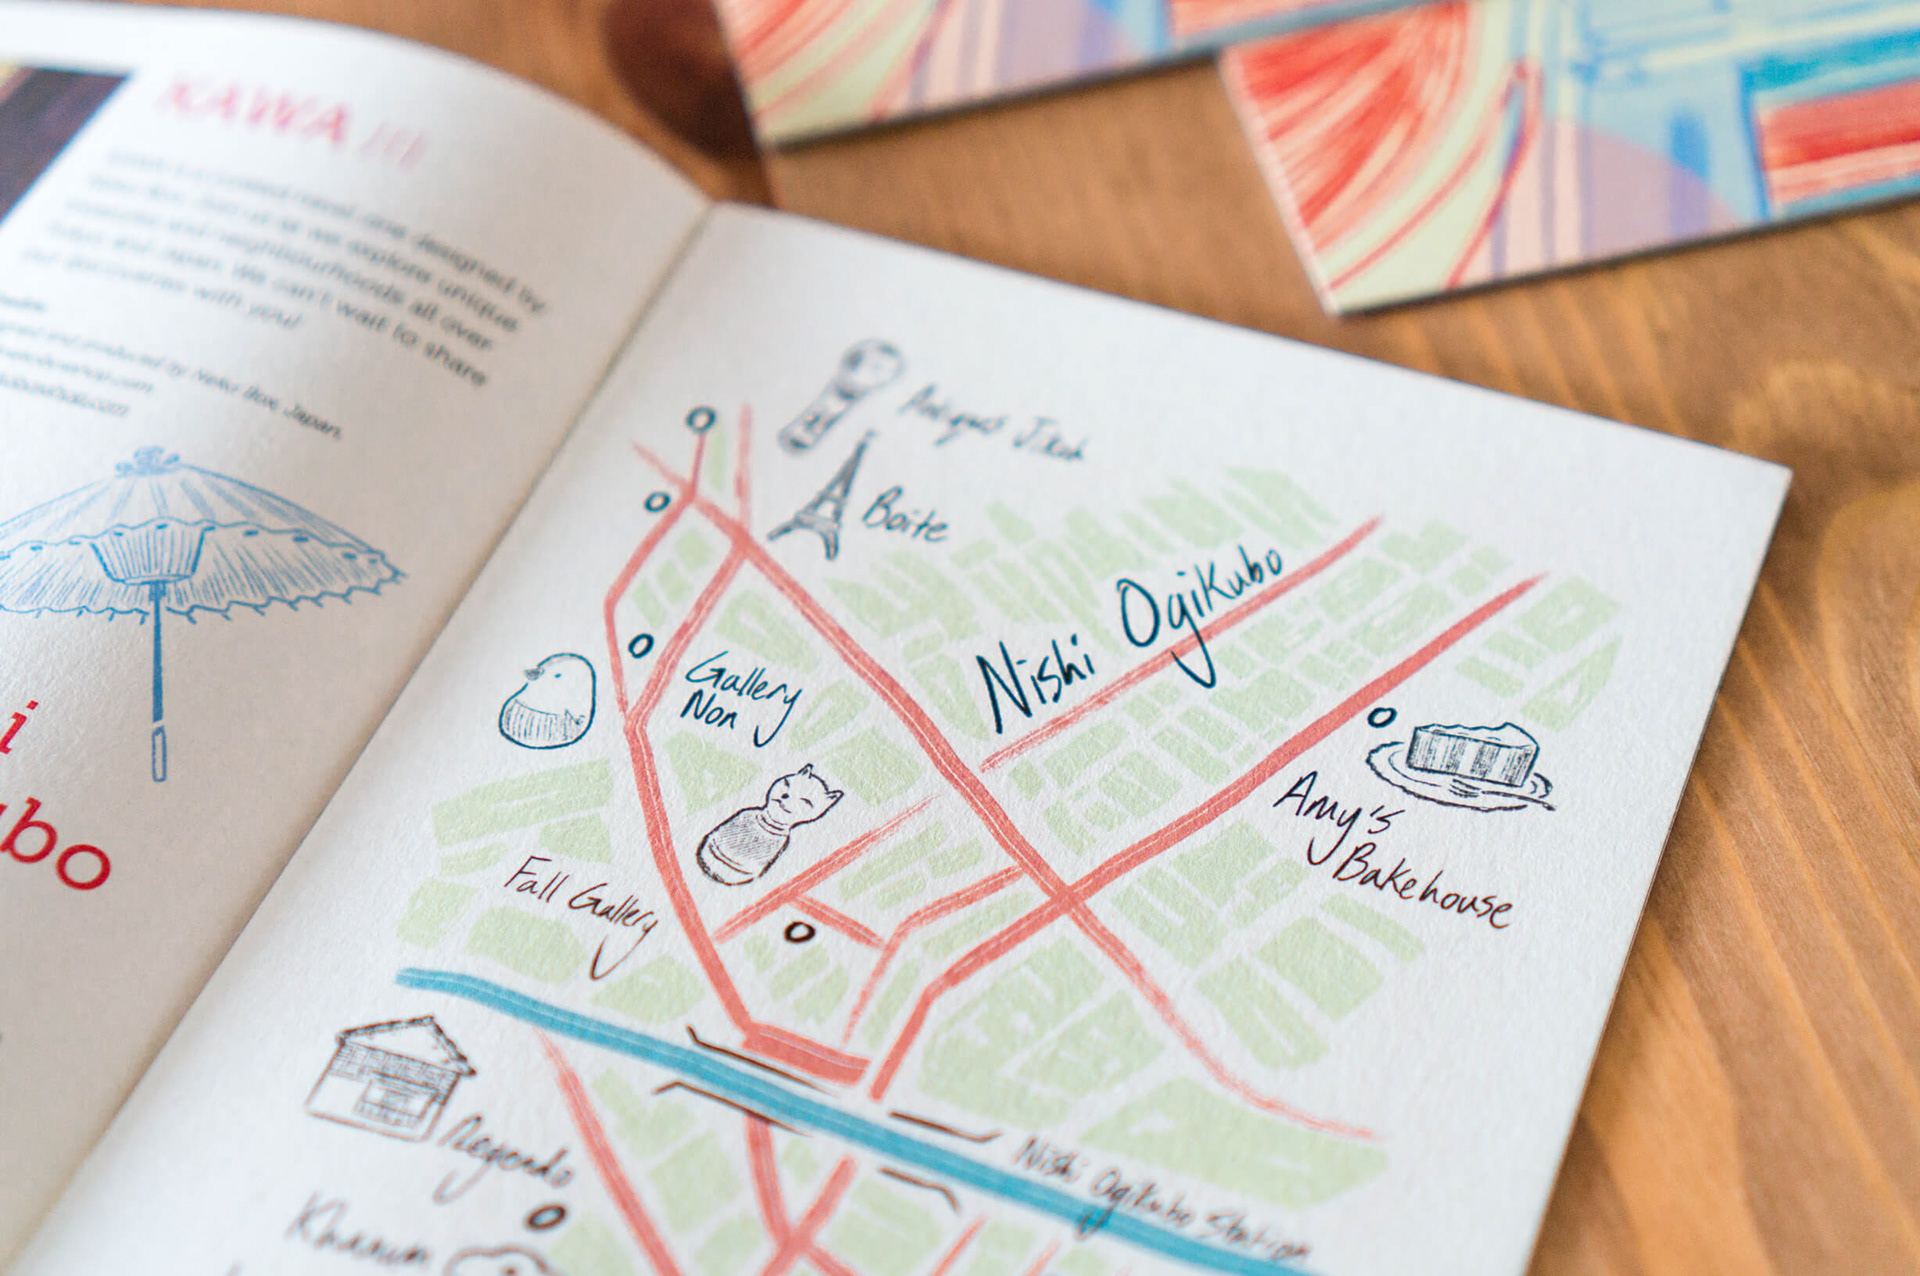 KAWA ///
KAWA is a curated travel zine designed by
Neko Box. Join us as we explore unique
lifestyles and neighbourhoods all over
Tokyo and Japan. We can't wait to share
our discoveries with you!
and produced by Neko Box, Japan.
i
bo
Jikoh
Boite
Nishi Ogikubo
Gallery
Non
Amy's
Bakehouse
Fall Gallery
Nishi Ogikubo Station